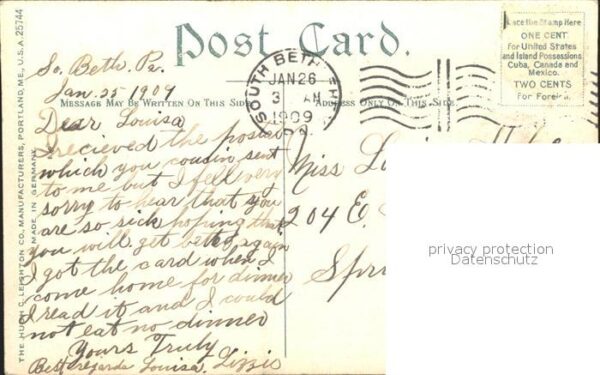 Post Card.
Place the Stamp Here
ONE CENT
for United States
and Island Possessions
Cuba, Canada and
Mexico.
TWO CENTS
for Foreign.
SOUTH BETHLEHEM
JAN 26
3 AM
1909
PA.
MESSAGE MAY BE WRITTEN ON THIS SIDE
ADDRESS ONLY ON THIS SIDE
THE HUGH C. LEIGHTON CO., MANUFACTURERS, PORTLAND, ME., U.S.A. 25744
MADE IN GERMANY
So. Beth. Pa.
Jan. 25 1909
Dear Louisa
I recieved the postal
which you cousin sent
to me but I fell very
sorry to hear that you
are so sick hoping that
you will get better again
I got the card when I
come home for dinner
I read it and I could
not eat no dinner
Yours Truly
Best regards Louisa, Lizzie
Miss
204 E.
Spri
privacy protection
Datenschutz